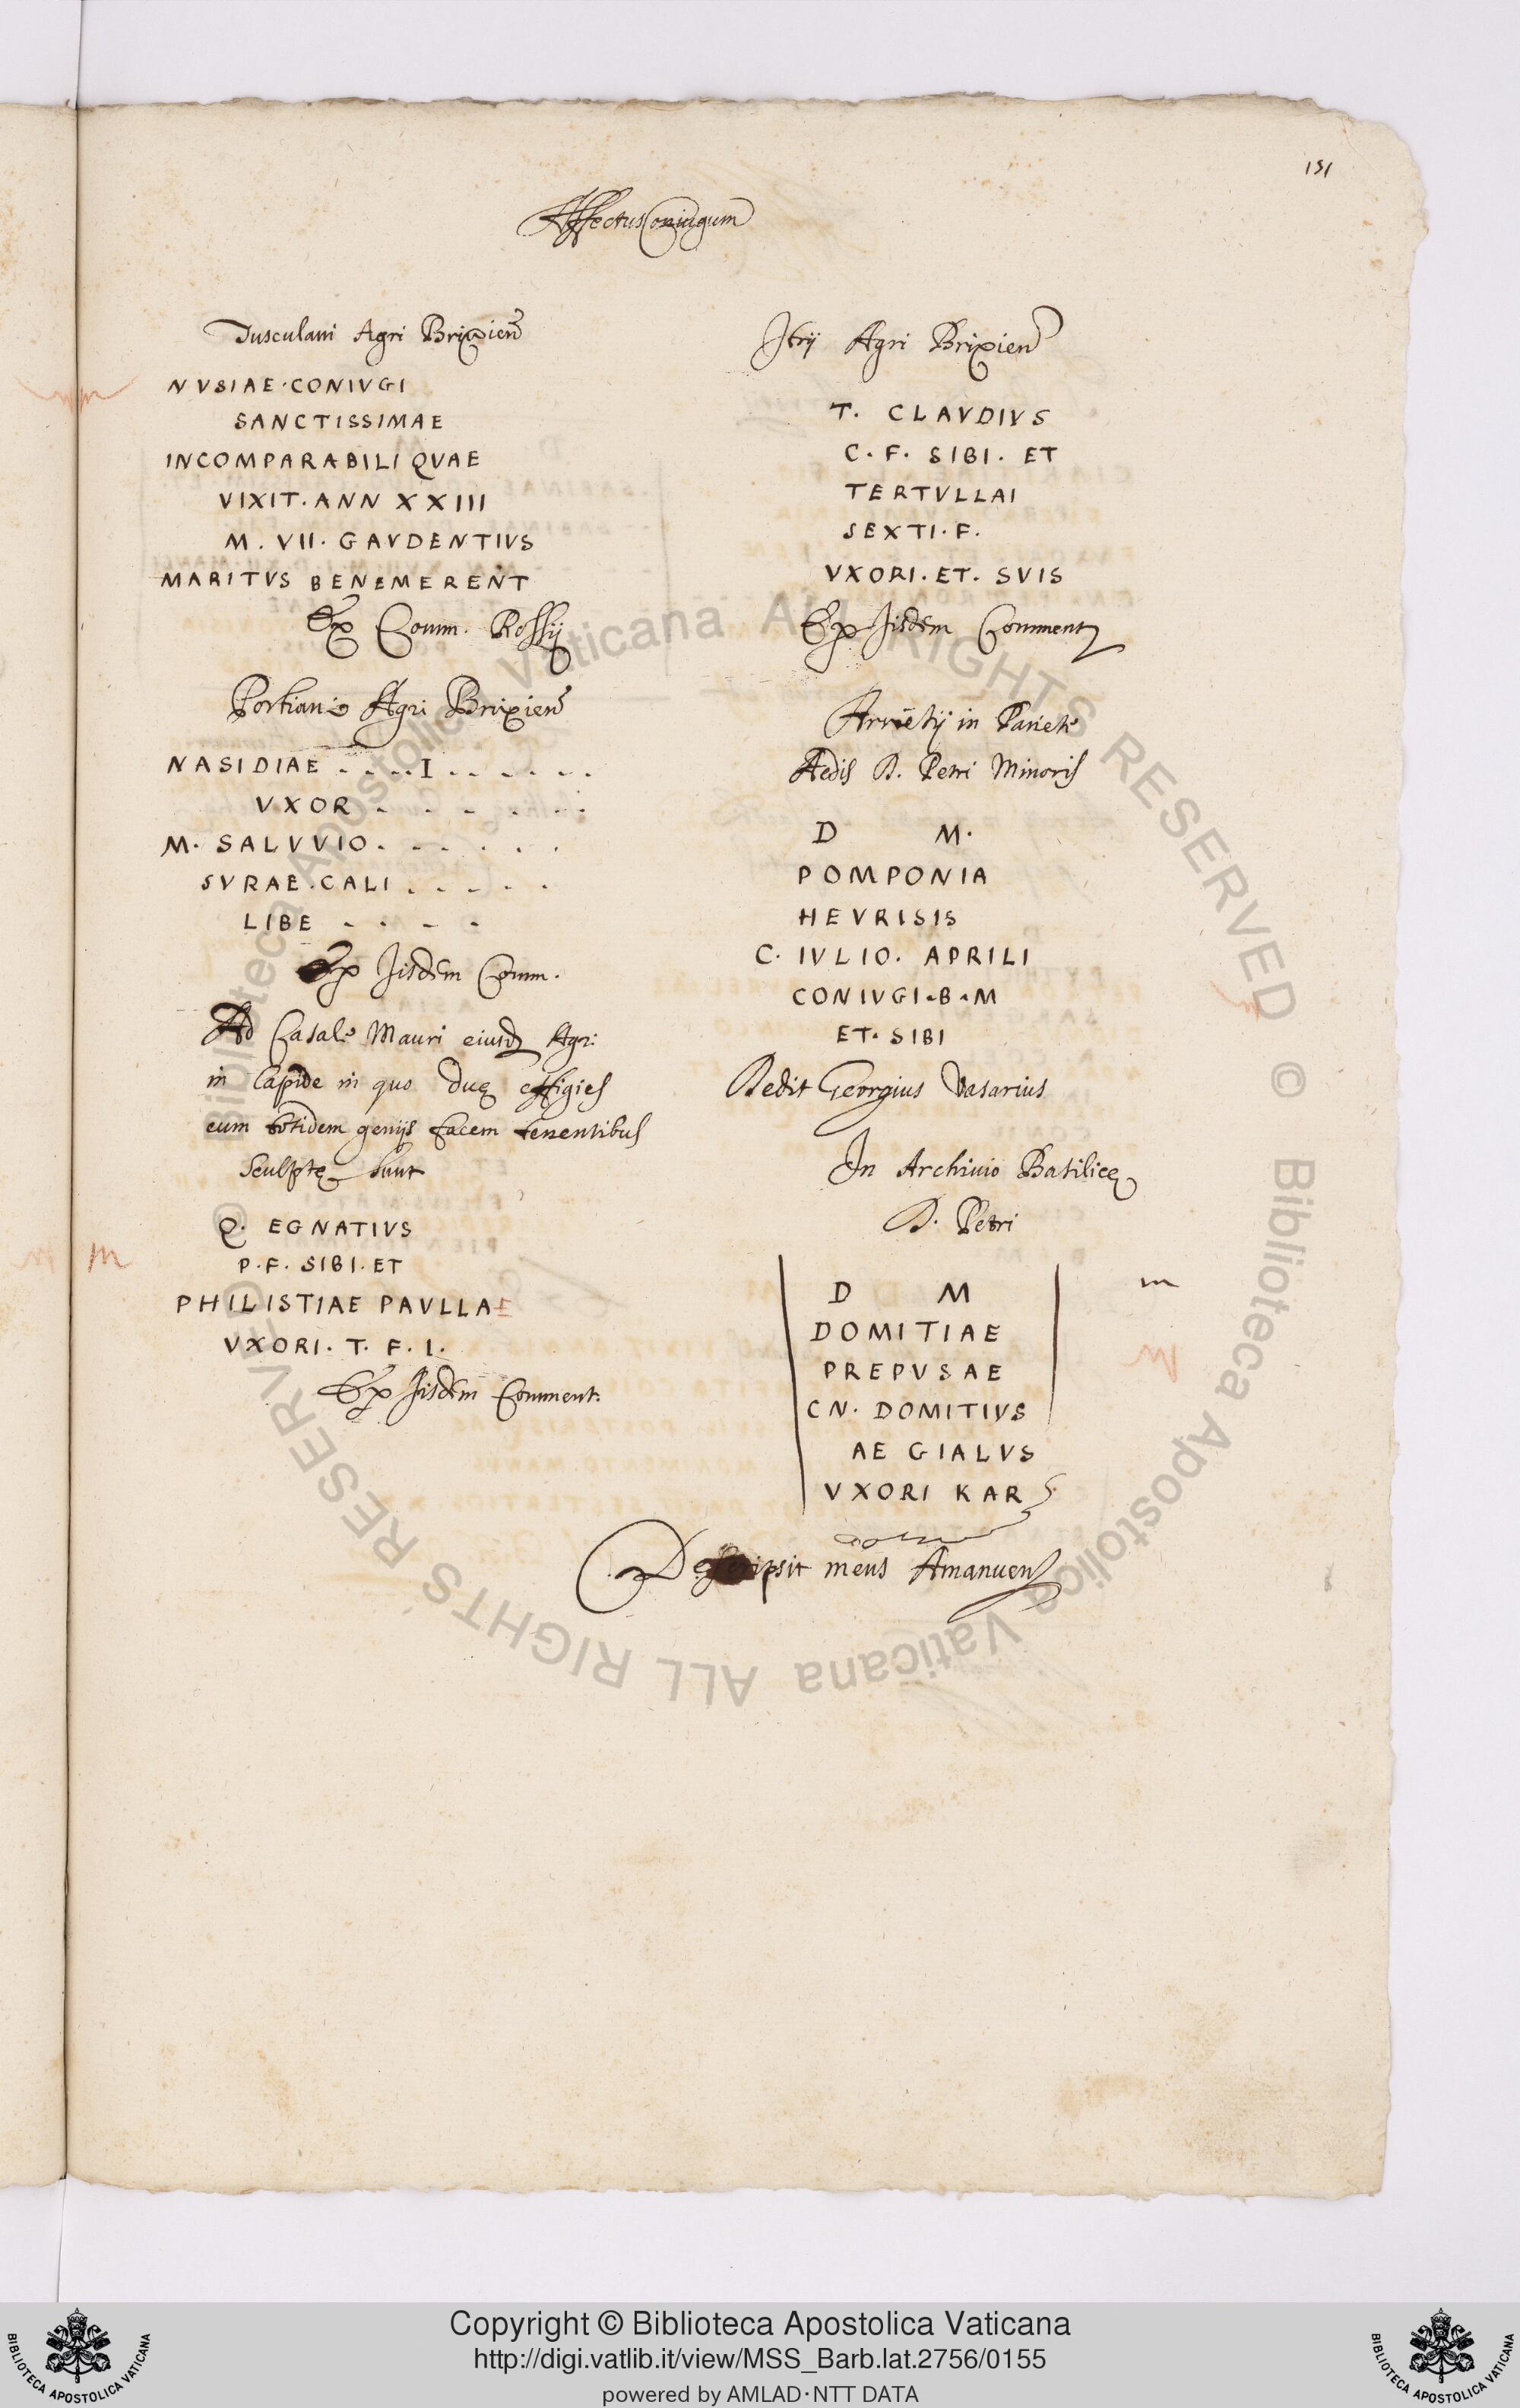 151
Affectus Coniugum
Tusculani Agri Brixien
NVSIAE·CONIVGI
SANCTISSIMAE
INCOMPARABILI QVAE
VIXIT. ANN XXIII
M. VII. GAVDENTIVS
MARITVS BENEMERENT
Ex Comm. Rossij
Portiani Agri Brixien
NASIDIAE . . . . I . . . . . .
VXOR . . . . . . .
M. SALVVIO . . . . . .
SVRAE. CALI . . . . .
LIBE . . . .
Ex Jisdem Comm.
Ad Casale Mauri eiusd Agri
in lapide in quo duę effigies
cum totidem genijs facem tenentibus
sculptę sunt
Q. EGNATIVS
P. F. SIBI. ET
PHILISTIAE PAVLLAE
VXORI. T. F. I.
Ex Jisdem Comment.
Itrij Agri Brixien
T. CLAVDIVS
C. F. SIBI. ET
TERTVLLAI
SEXTI. F.
VXORI. ET. SVIS
Ex Jisdem Comment
Arretij in Pariete
Aedis D. Petri Minoris
D M.
POMPONIA
HEVRISIS
C. IVLIO. APRILI
CONIVGI. B. M
ET. SIBI
Dedit Georgius Vasarius
In Archiuio Basilicę
D. Petri
D M
DOMITIAE
PREPVSAE
CN. DOMITIVS
AE GIALVS
VXORI KAR S.
m
Descripsit meus Amanuen
© Biblioteca Apostolica Vaticana ALL RIGHTS RESERVED © Biblioteca Apostolica Vaticana ALL RIGHTS RESERVED
Copyright © Biblioteca Apostolica Vaticana
http://digi.vatlib.it/view/MSS_Barb.lat.2756/0155
powered by AMLAD·NTT DATA
BIBLIOTECA APOSTOLICA VATICANA
BIBLIOTECA APOSTOLICA VATICANA